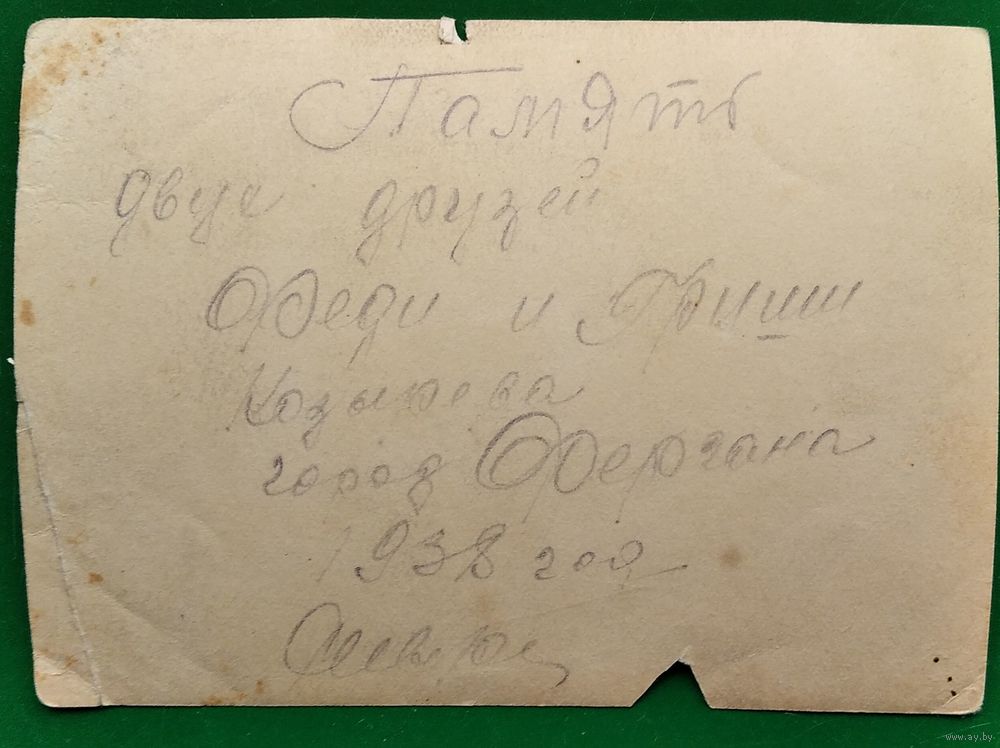 Память
двух друзей
Феди и Гриши
Козырева
город Фергана
1938 год
www.ay.by